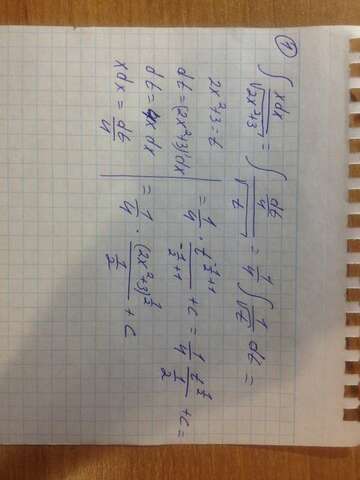 ① ∫ xdx/√(2x²+3) = ∫ (dt/4)/√t = 1/4 ∫ 1/√t dt =
2x²+3=t
dt=(2x²+3)'dx
dt=4xdx
xdx = dt/4
= 1/4 · t^(-1/2+1)/(-1/2+1) + c = 1/4 · t^(1/2)/(1/2) + c =
= 1/4 · (2x²+3)^(1/2)/(1/2) + c